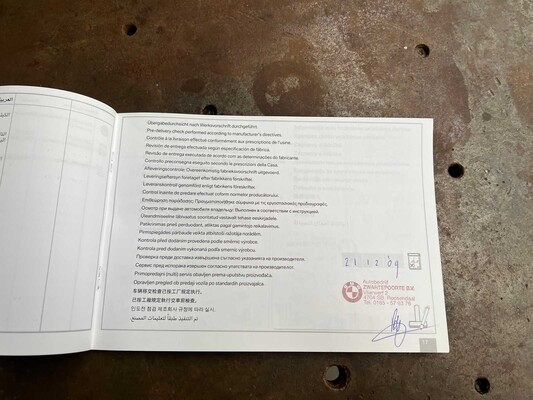 Übergabedurchsicht nach Werksvorschrift durchgeführt.
Pre-delivery check performed according to manufacturer's directives.
Contrôle à la livraison effectué conformément aux prescriptions de l'usine.
Revisión de entrega efectuada según especificación de fábrica.
Revisão de entrega executada de acordo com as determinações do fabricante.
Controllo preconsegna eseguito secondo le prescrizioni della Casa.
Afleveringscontrole: Overeenkomstig fabrieksvoorschrift uitgevoerd.
Leveringseftersyn foretaget efter fabrikkens forskrifter.
Leveranskontroll genomförd enligt fabrikens föreskrifter.
Control înainte de predare efectuat coform normelor producătorului.
Επιθεώρηση παράδοσης: Πραγματοποιήθηκε σύμφωνα με τις εργοστασιακές προδιαγραφές.
Осмотр при выдаче автомобиля владельцу: Выполнен в соответствии с инструкцией.
Üleandmiseelne läbivaatus sooritatud vastavalt tehase eeskirjadele.
Patikrinimas prieš perduodant, atliktas pagal gamintojo reikalavimus.
Pirmspiegādes pārbaude veikta atbilstoši ražotāja norādēm.
Kontrola před dodáním provedena podle směrnic výrobce.
Kontrola pred dodaním vykonaná podľa smerníc výrobcu.
Проверка преди доставка извършена съгласно указанията на производителя.
Сервис пред испорака извршен согласно упатствата на производителот.
Primopredajni (nulti) servis obavljen prema uputstvu proizvođača.
Opravljen pregled ob predaji vozila po standardih proizvajalca.
车辆移交检查已按工厂规定执行。
已按工廠規定執行交車前檢查。
인도전 점검 제조회사 규정에 따라 실시.
تم التنفيذ طبقاً لتعليمات المصنع.
21 12 09
Autobedrijf
ZWARTEPOORTE B.V.
Vijverwerf 2
4704 RB Roosendaal
Tel. 0165 - 57 63 74
17